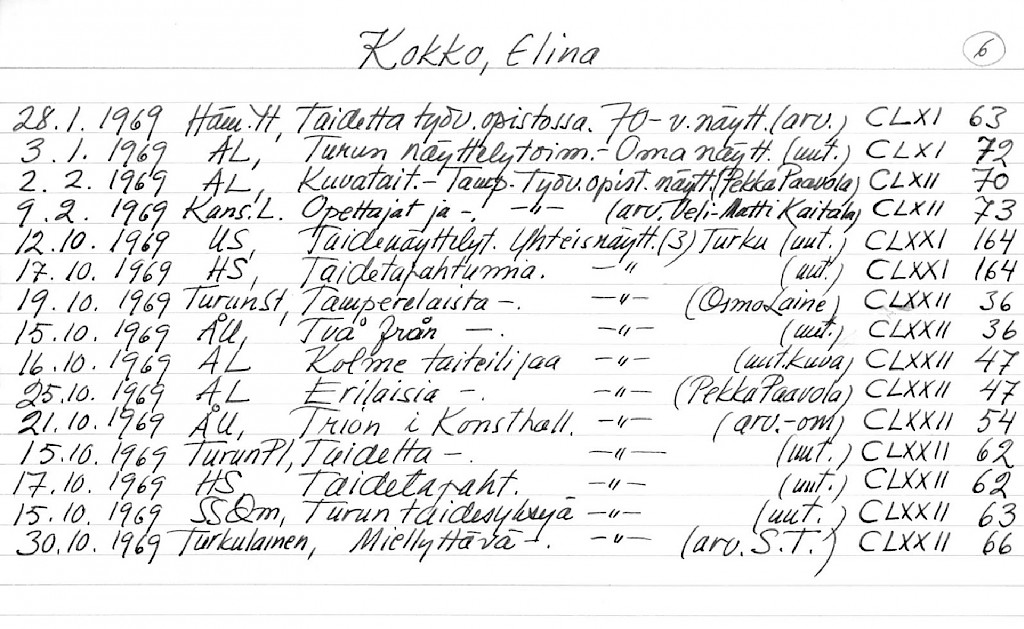 Kokko, Elina 6
28.1. 1969 Häm.H, Taidetta työv.opistossa. 70-v.näytt.(arv.) CLXI 63
3.1. 1969 AL, Turun näyttelytoim.- Oma näytt. (uut.) CLXI 72
2.2. 1969 AL, Kuvatait.- Tamp. Työv.opist. näytt.(Pekka Paavola) CLXII 70
9.2. 1969 Kans.L. Opettajat ja -. -"- (arv. Veli-Matti Kaitala) CLXII 73
12.10. 1969 US, Taidenäyttelyt. Yhteisnäytt.(3) Turku (uut.) CLXXI 164
17.10. 1969 HS, Taidetapahtumia. -"- (uut.) CLXXI 164
19.10. 1969 TurunSt, Tamperelaista -. -"- (Osmo Laine) CLXXII 36
15.10. 1969 ÅU, Två från -. -"- (uut.) CLXXII 36
16.10. 1969 AL Kolme taiteilijaa -"- (uut.kuva) CLXXII 47
25.10. 1969 AL Erilaisia -. -"- (Pekka Paavola) CLXXII 47
21.10. 1969 ÅU, Trion i Konsthall. -"- (arv.-om) CLXXII 54
15.10. 1969 TurunPl, Taidetta -. -"- (uut.) CLXXII 62
17.10. 1969 HS Taidetapaht. -"- (uut.) CLXXII 62
15.10. 1969 Turun taidesyksyä -"- (uut.) CLXXII 63
30.10. 1969 Turkulainen, Miellyttävä -. -"- (arv. S.T.) CLXXII 66